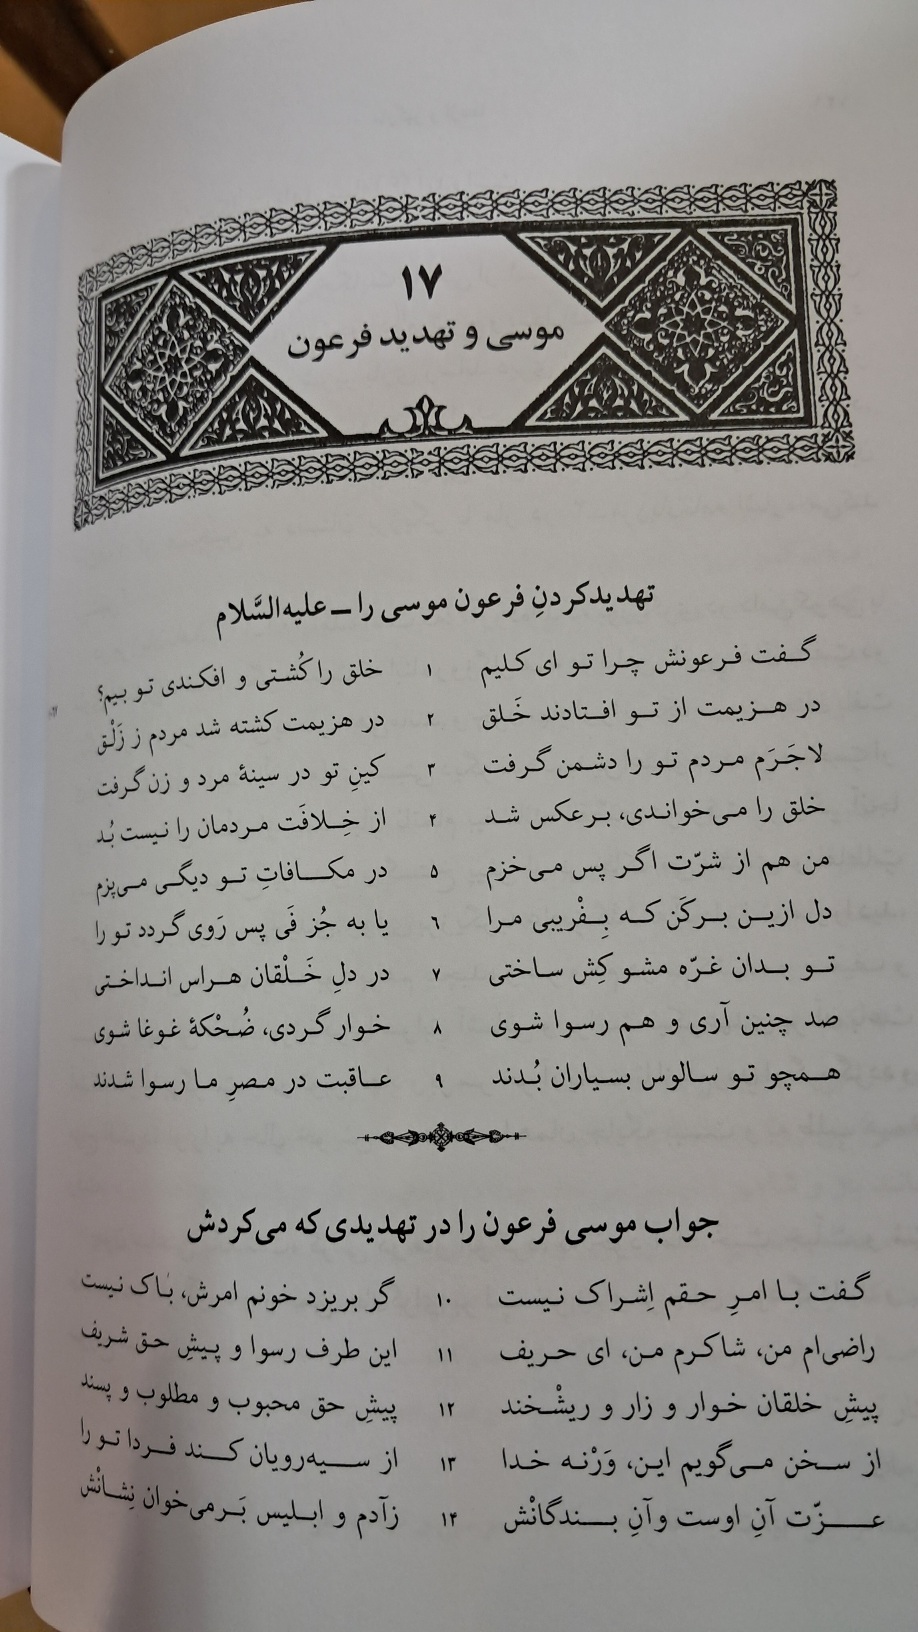 ۱۷
موسی و تهدید فرعون
تهدیدکردنِ فرعون موسی را ـ علیه‌السَّلام
گفت فرعونش چرا تو ای کلیم ۱ خلق را کُشتی و افکندی تو بیم؟
در هزیمت از تو افتادند خَلق ۲ در هزیمت کشته شد مردم ز زَلْق
لاجَرَم مردم تو را دشمن گرفت ۳ کینِ تو در سینهٔ مرد و زن گرفت
خلق را می‌خواندی، برعکس شد ۴ از خِلافَت مردمان را نیست بُد
من هم از شرّت اگر پس می‌خزم ۵ در مکافاتِ تو دیگی می‌پزم
دل ازین برکَن که بِفْریبی مرا ۶ یا به جُز فَی پس رَوی گردد تو را
تو بدان غرّه مشو کِش ساختی ۷ در دلِ خَلْقان هراس انداختی
صد چنین آری و هم رسوا شوی ۸ خوار گردی، ضُحْکهٔ غوغا شوی
همچو تو سالوس بسیاران بُدند ۹ عاقبت در مصرِ ما رسوا شدند
جواب موسی فرعون را در تهدیدی که می‌کردش
گفت با امرِ حقم اِشراک نیست ۱۰ گر بریزد خونم امرش، باک نیست
راضی‌ام من، شاکرم من، ای حریف ۱۱ این طرف رسوا و پیشِ حق شریف
پیشِ خلقان خوار و زار و ریشْخند ۱۲ پیشِ حق محبوب و مطلوب و پسند
از سخن می‌گویم این، وَرْنه خدا ۱۳ از سیه‌رویان کند فردا تو را
عزّت آنِ اوست وآنِ بندگانْش ۱۴ زآدم و ابلیس بَرمی‌خوان نِشانْش